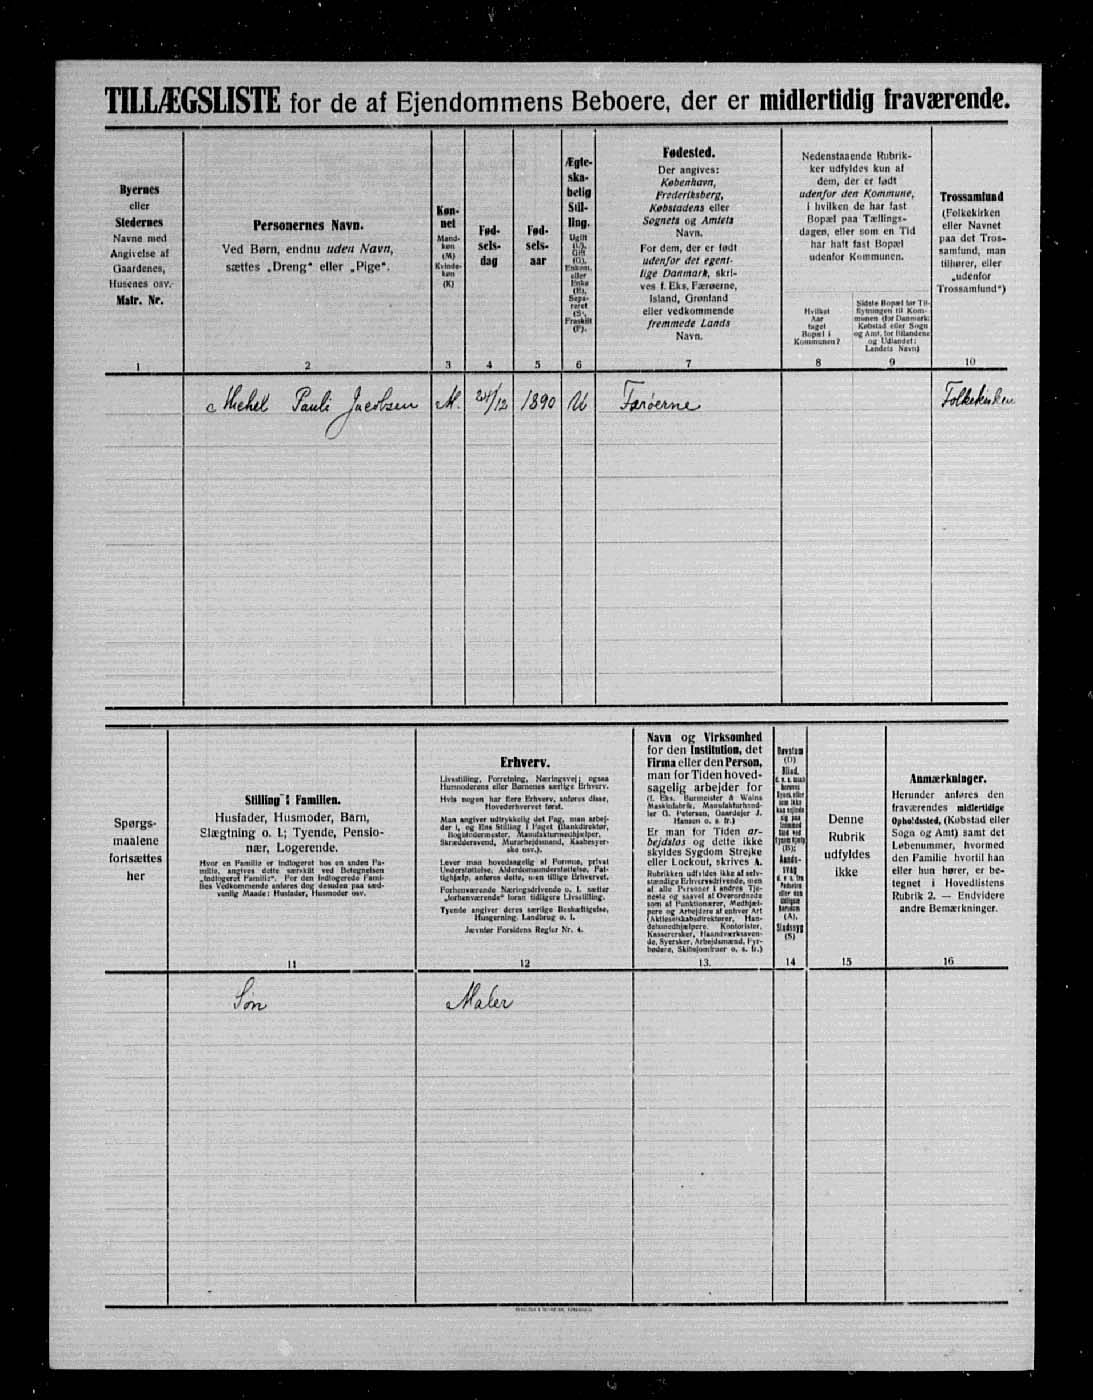 TILLÆGSLISTE for de af Ejendommens Beboere, der er midlertidig fraværende.
Byernes
eller
Stedernes
Navne med
Angivelse af
Gaardenes,
Husenes osv.
Matr. Nr.
1
Personernes Navn.
Ved Børn, endnu uden Navn,
sættes „Dreng“ eller „Pige“.
2
Køn-
net
Mand-
køn
(M)
Kvinde-
køn
(K)
3
Fød-
sels-
dag
4
Fød-
sels-
aar
5
Ægte-
ska-
belig
Stil-
ling.
Ugift
(U),
Gift
(G),
Enkem.
eller
Enke
(E),
Sepa-
reret
(S),
Fraskilt
(F).
6
Fødested.
Der angives:
København,
Frederiksberg,
Købstadens eller
Sognets og Amtets
Navn.
For dem, der er født
udenfor det egent-
lige Danmark, skri-
ves f. Eks. Færøerne,
Island, Grønland
eller vedkommende
fremmede Lands
Navn.
7
Nedenstaaende Rubrik-
ker udfyldes kun af
dem, der er født
udenfor den Kommune,
i hvilken de har fast
Bopæl paa Tællings-
dagen, eller som en Tid
har haft fast Bopæl
udenfor Kommunen.
Hvilket
Aar
taget
Bopæl i
Kommunen?
8
Sidste Bopæl før Til-
flytningen til Kom-
munen (for Danmark:
Købstad eller Sogn
og Amt, for Bilandene
og Udlandet:
Landets Navn)
9
Trossamfund
(Folkekirken
eller Navnet
paa det Tros-
samfund, man
tilhører, eller
„udenfor
Trossamfund“)
10
Michel Pauli Jacobsen M. 24/12 1890 U Færöerne Folkekirken
Spørgs-
maalene
fortsættes
her
Stilling i Familien.
Husfader, Husmoder, Barn,
Slægtning o. l.; Tyende, Pensio-
nær, Logerende.
Hvor en Familie er indlogeret hos en anden Fa-
milie, angives dette særskilt ved Betegnelsen
„Indlogeret Familie“. For den indlogerede Fami-
lies Vedkommende anføres dog desuden paa sæd-
vanlig Maade: Husfader, Husmoder osv.
11
Erhverv.
Livsstilling, Forretning, Næringsvej; ogsaa
Husmoderens eller Børnenes særlige Erhverv.
Hvis nogen har flere Erhverv, anføres disse,
Hovederhvervet først.
Man angiver udtrykkelig det Fag, man arbej-
der i, og Ens Stilling i Faget (Bankdirektør,
Bogbindermester, Manufakturmedhjælper,
Skræddersvend, Murarbejdsmand, Kaabesyer-
ske osv.).
Lever man hovedsagelig af Formue, privat
Understøttelse, Alderdomsunderstøttelse, Fat-
tighjælp, anføres dette, men tillige Erhvervet.
Forhenværende Næringsdrivende o. l. sætter
„forhenværende“ foran tidligere Livsstilling.
Tyende angiver deres særlige Beskæftigelse,
Husgerning, Landbrug o. l.
Jævnfør Forsidens Regler Nr. 4.
12
Navn og Virksomhed
for den Institution, det
Firma eller den Person,
man for Tiden hoved-
sagelig arbejder for
(f. Eks. Burmeister & Wains
Maskinfabrik, Manufakturhand-
ler G. Petersen, Gaardejer J.
Hansen o. s. fr.)
Er man for Tiden ar-
bejdsløs og dette ikke
skyldes Sygdom Strejke
eller Lockout, skrives A.
Rubrikken udfyldes ikke af selv-
stændige Erhvervsdrivende, men
af alle Personer i andres Tje-
neste og saavel af Overordnede
som af Funktionærer, Medhjæl-
pere og Arbejdere af enhver Art
(Aktieselskabsdirektører, Han-
delsmedhjælpere, Kontorister,
Kasserersker, Haandværkssven-
de, Syersker, Arbejdsmænd, Fyr-
bødere, Skibsjomfruer o. s. fr.)
13.
Døvstum
(D)
Blind,
(B);
Aands-
svag
(A).
Sindssyg
(S)
14
Denne
Rubrik
udfyldes
ikke
15
Anmærkninger.
Herunder anføres den
fraværendes midlertidige
Opholdssted, (Købstad eller
Sogn og Amt) samt det
Løbenummer, hvormed
den Familie hvortil han
eller hun hører, er be-
tegnet i Hovedlistens
Rubrik 2. — Endvidere
andre Bemærkninger.
16
Søn Maler